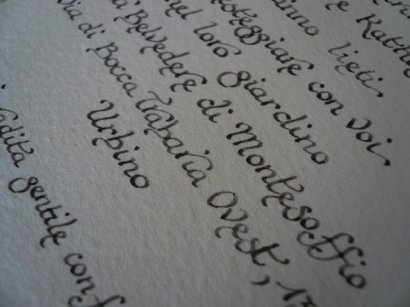 e Kath
anno lieti,
festeggiare con voi,
nel loro giardino
Belvedere di Montesoffio
Via di Bocca Trabaria Ovest, 1
Urbino
gradita gentile conf